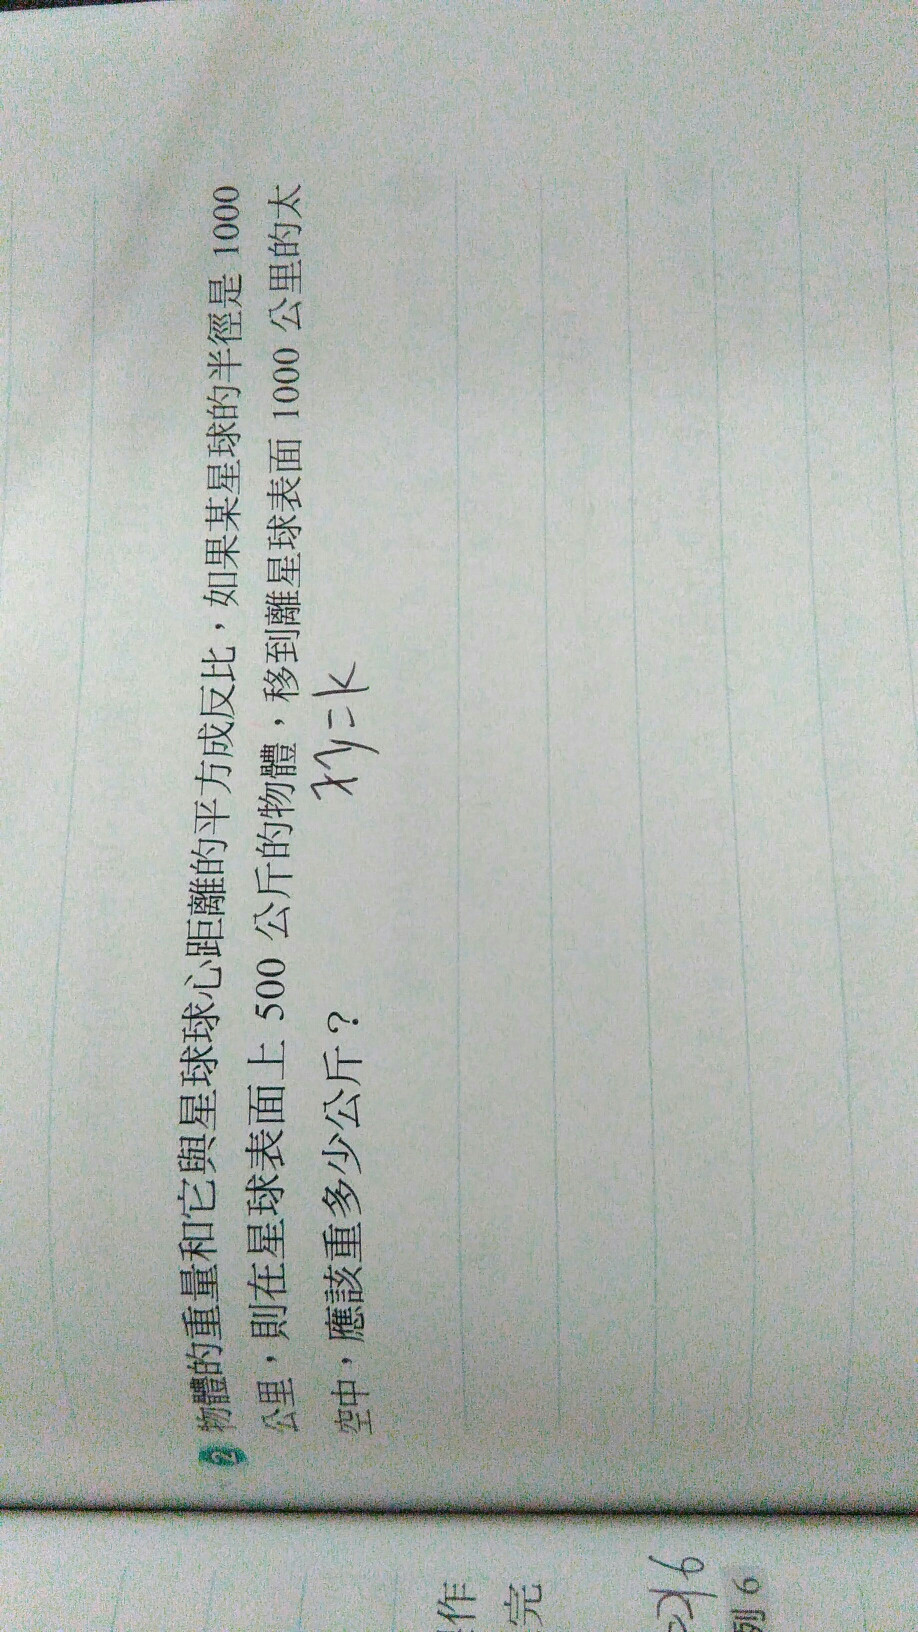 2 物體的重量和它與星球球心距離的平方成反比，如果某星球的半徑是 1000
公里，則在星球表面上 500 公斤的物體，移到離星球表面 1000 公里的太
空中，應該重多少公斤？
xy=k
作
完
例 6